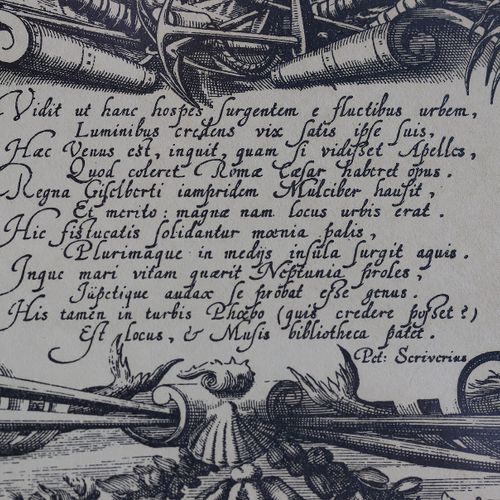 Vidit ut hanc hospes surgentem e fluctibus urbem,
Luminibus credens vix satis ipse suis,
Hæc Venus est, inquit, quam si vidisset Apelles,
Quod coleret Romæ Cæsar haberet opus.
Regna Giselberti iampridem Mulciber hausit,
Et merito: magnæ nam locus urbis erat.
Hic fistucatis solidantur mœnia palis,
Plurimaque in medijs insula surgit aquis.
Inque mari vitam quærit Neptunia proles,
Iäpetique audax se probat esse genus.
His tamen in turbis Phœbo (quis credere posset?)
Est locus, & Musis bibliotheca patet.
Pet: Scriverius